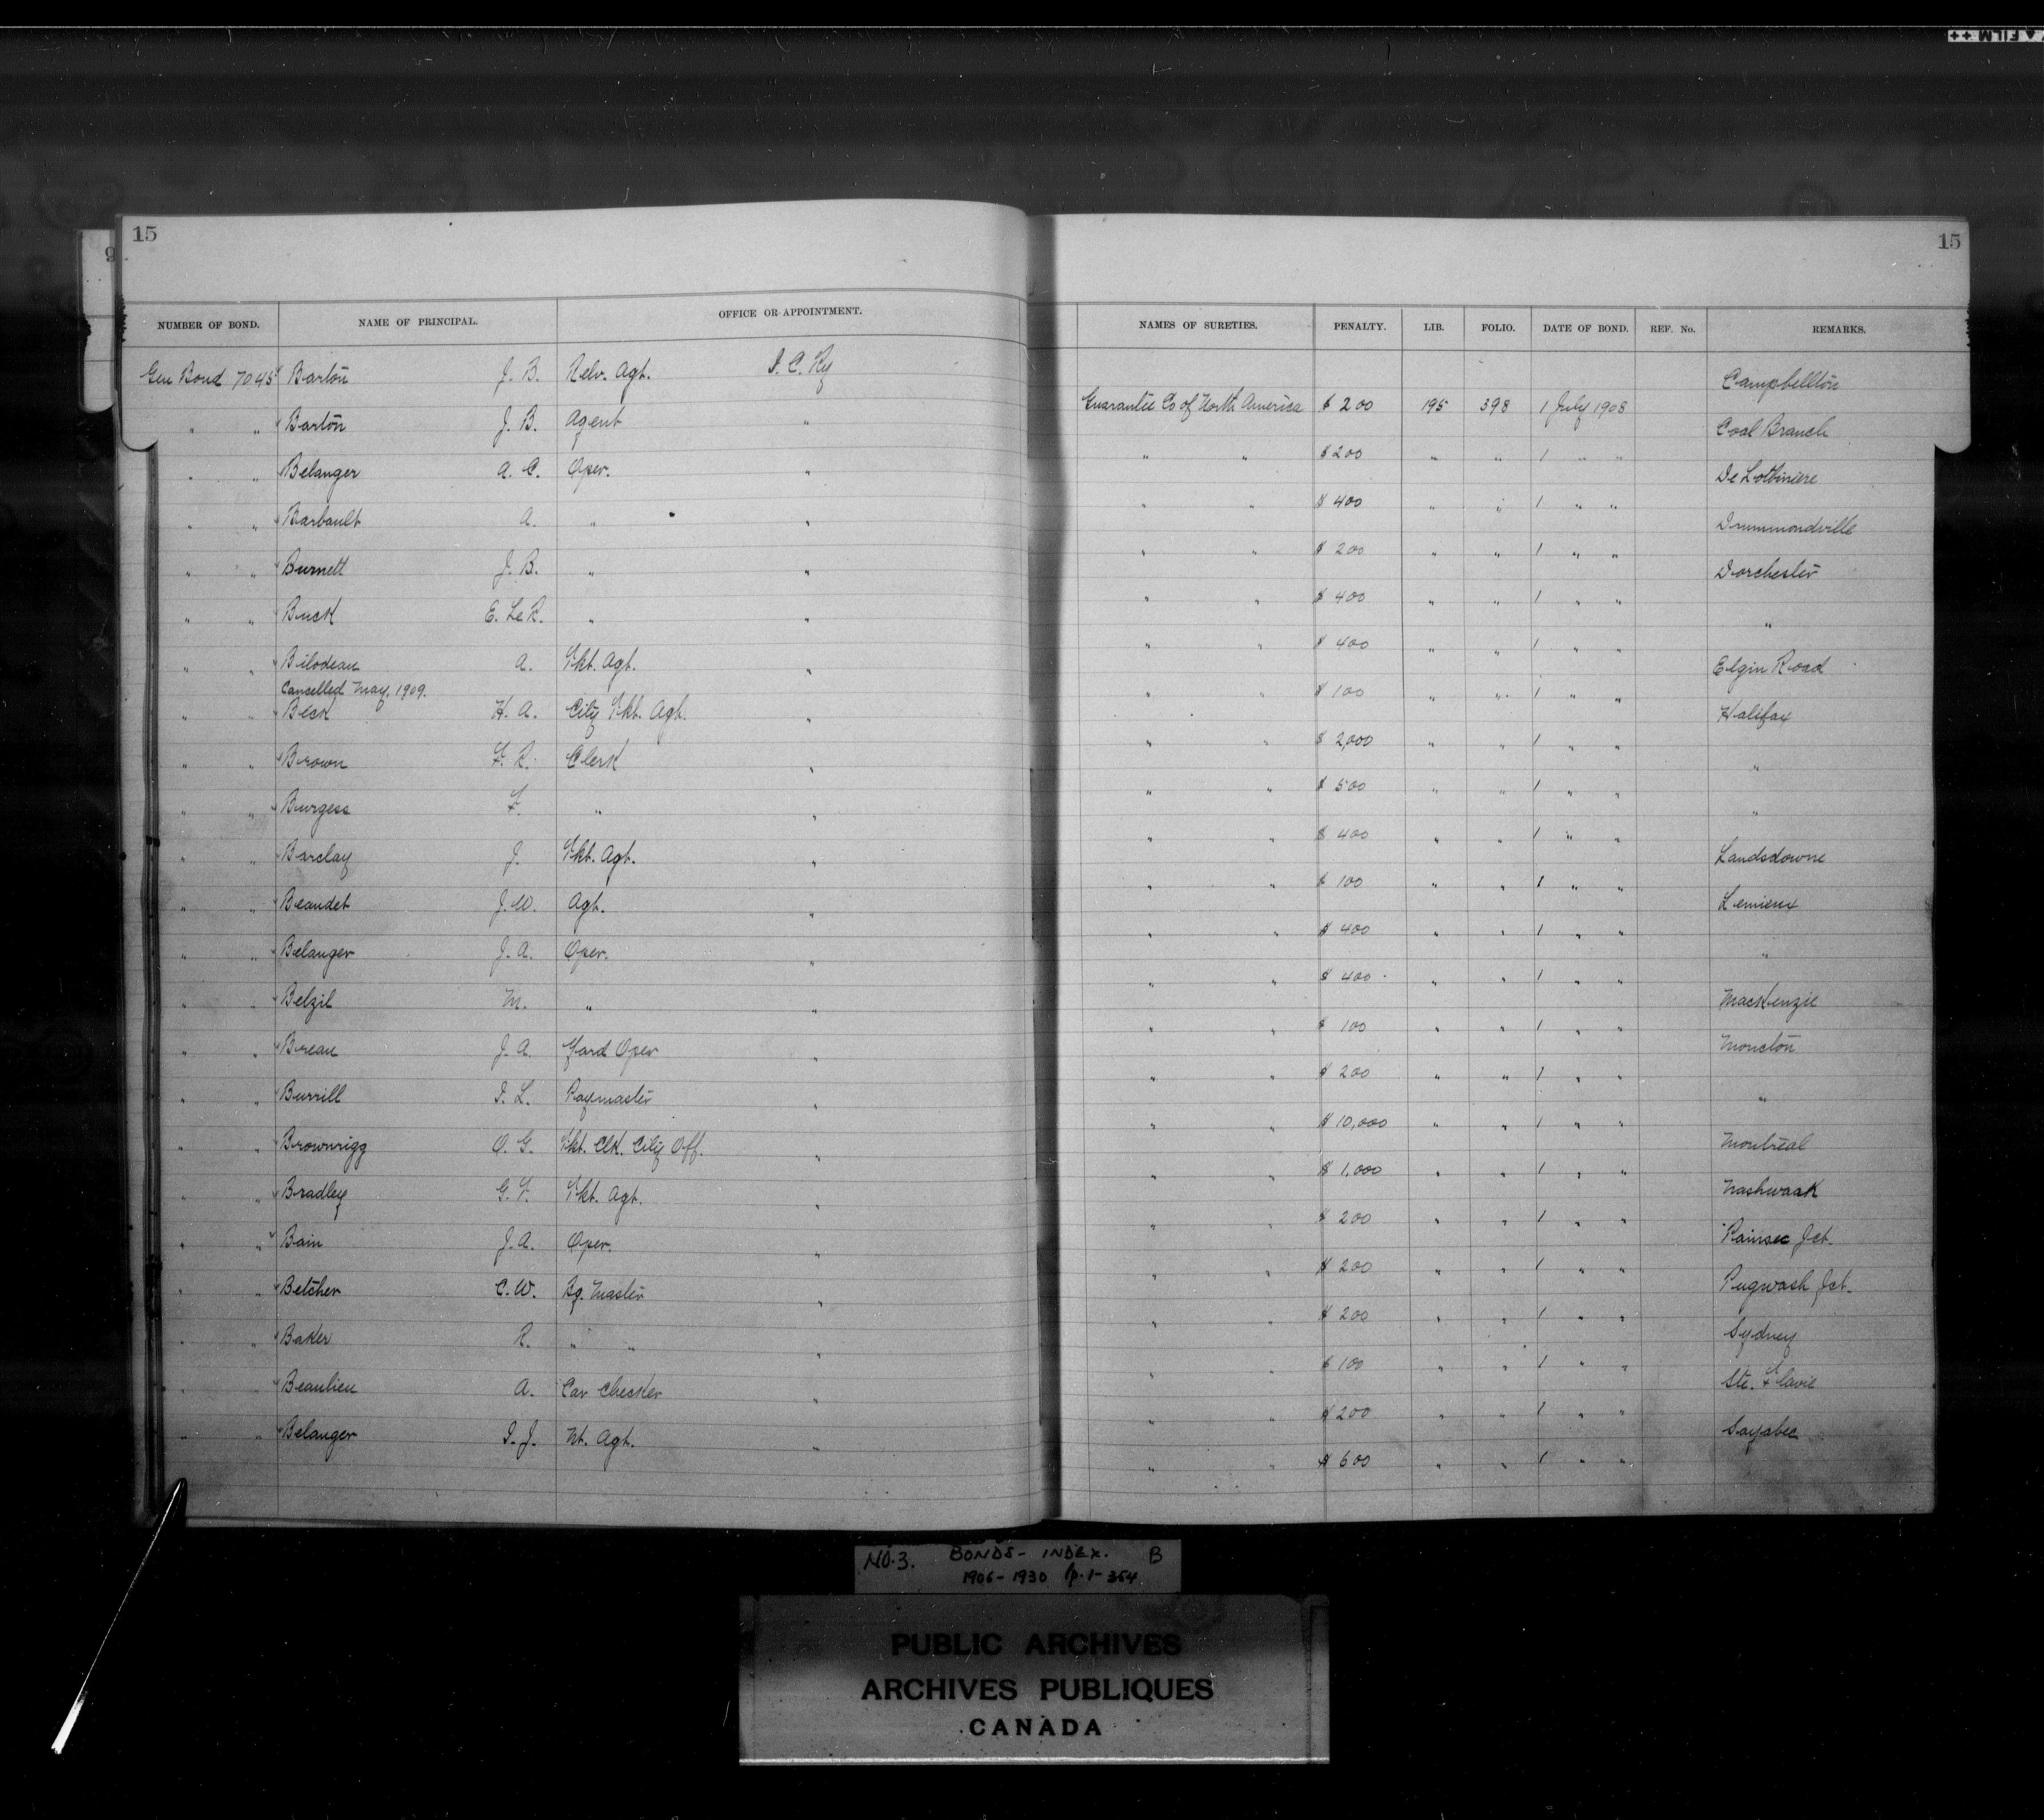 FILM ++
15
15
9
NUMBER OF BOND. NAME OF PRINCIPAL. OFFICE OR APPOINTMENT. NAMES OF SURETIES. PENALTY. LIB. FOLIO. DATE OF BOND. REF. No. REMARKS.
Gen Bond 7045 Barton J. B. Relv. Agt. I. C. Ry Guarantee Co of North America $ 200 195 398 1 July 1908 Campbellton
" " Barton J. B. Agent " " " $ 200 " " 1 " " Coal Branch
" " Belanger A. C. Oper. " " " $ 400 " " 1 " " De Lotbiniere
" " Barbault A. " " " " $ 200 " " 1 " " Drummondville
" " Burnett J. B. " " " " $ 400 " " 1 " " Dorchester
" " Buck E. Le R. " " " " $ 400 " " 1 " " "
" " Bilodeau A. Tkt. Agt. " " " $ 100 " " 1 " " Elgin Road
Cancelled May, 1909.
" " Beck H. A. City Tkt. Agt. " " " $ 2,000 " " 1 " " Halifax
" " Brown F. R. Clerk " " " $ 500 " " 1 " " "
" " Burgess F. " " " " $ 400 " " 1 " " "
" " Barclay J. Tkt. Agt. " " " $ 100 " " 1 " " Landsdowne
" " Beaudet J. W. Agt. " " " $ 400 " " 1 " " Lemieux
" " Belanger J. A. Oper. " " " $ 400 " " 1 " " "
" " Belzil M. " " " " $ 100 " " 1 " " MacKenzie
" " Breau J. A. Yard Oper " " " $ 200 " " 1 " " Moncton
" " Burrill I. L. Paymaster " " " $ 10,000 " " 1 " " "
" " Brownrigg O. G. Tkt. Clk. City Off. " " " $ 1,000 " " 1 " " Montreal
" " Bradley G. F. Tkt. Agt. " " " $ 200 " " 1 " " Nashwaak
" " Bain J. A. Oper. " " " $ 200 " " 1 " " Painsec Jct.
" " Betcher C. W. Bg. Master " " " $ 200 " " 1 " " Pugwash Jct.
" " Baker R. " " " " " $ 100 " " 1 " " Sydney
" " Beaulieu A. Car Checker " " " $ 200 " " 1 " " Ste. Flavie
" " Belanger I. J. Nt. Agt. " " " $ 600 " " 1 " " Sayabec
NO. 3. BONDS - INDEX. B
1906 - 1930 p. 1 - 354
PUBLIC ARCHIVES
ARCHIVES PUBLIQUES
CANADA